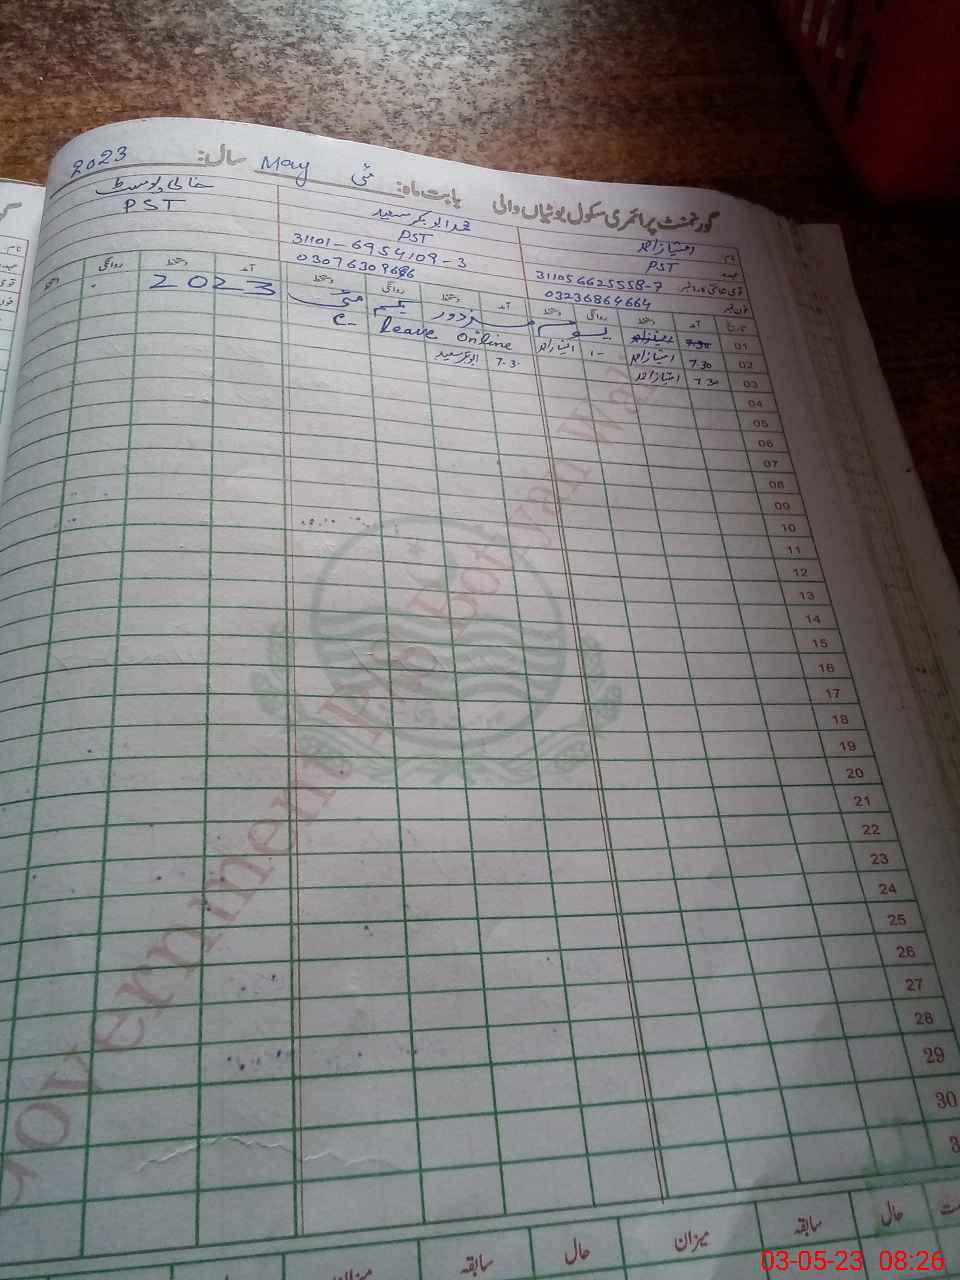 گورنمنٹ پرائمری سکول بوٹیاں والی بابت ماہ: مئی May سال: 2023
نام امتیاز احمد محمد ابوبکر سعید خالی پوسٹ
عہدہ PST PST PST
311056625558-7 31101-6954109-3
فون نمبر 03236864664 03076309686
تاریخ آمد دستخط روانگی دستخط آمد دستخط روانگی دستخط آمد دستخط روانگی دستخط
01 7:30 یوم مزدور یکم مئی 2023
02 7.30 امتیاز احمد 1- امتیاز احمد Online Leave C-
03 7.30 امتیاز احمد 7.30 ابوبکر سعید
04
05
06
07
08
09
10
11
12
13
14
15
16
17
18
19
20
21
22
23
24
25
26
27
28
29
30
3
حال سابقہ میزان حال سابقہ میزان
Government P/S Botiyan Wali
03-05-23 08:26